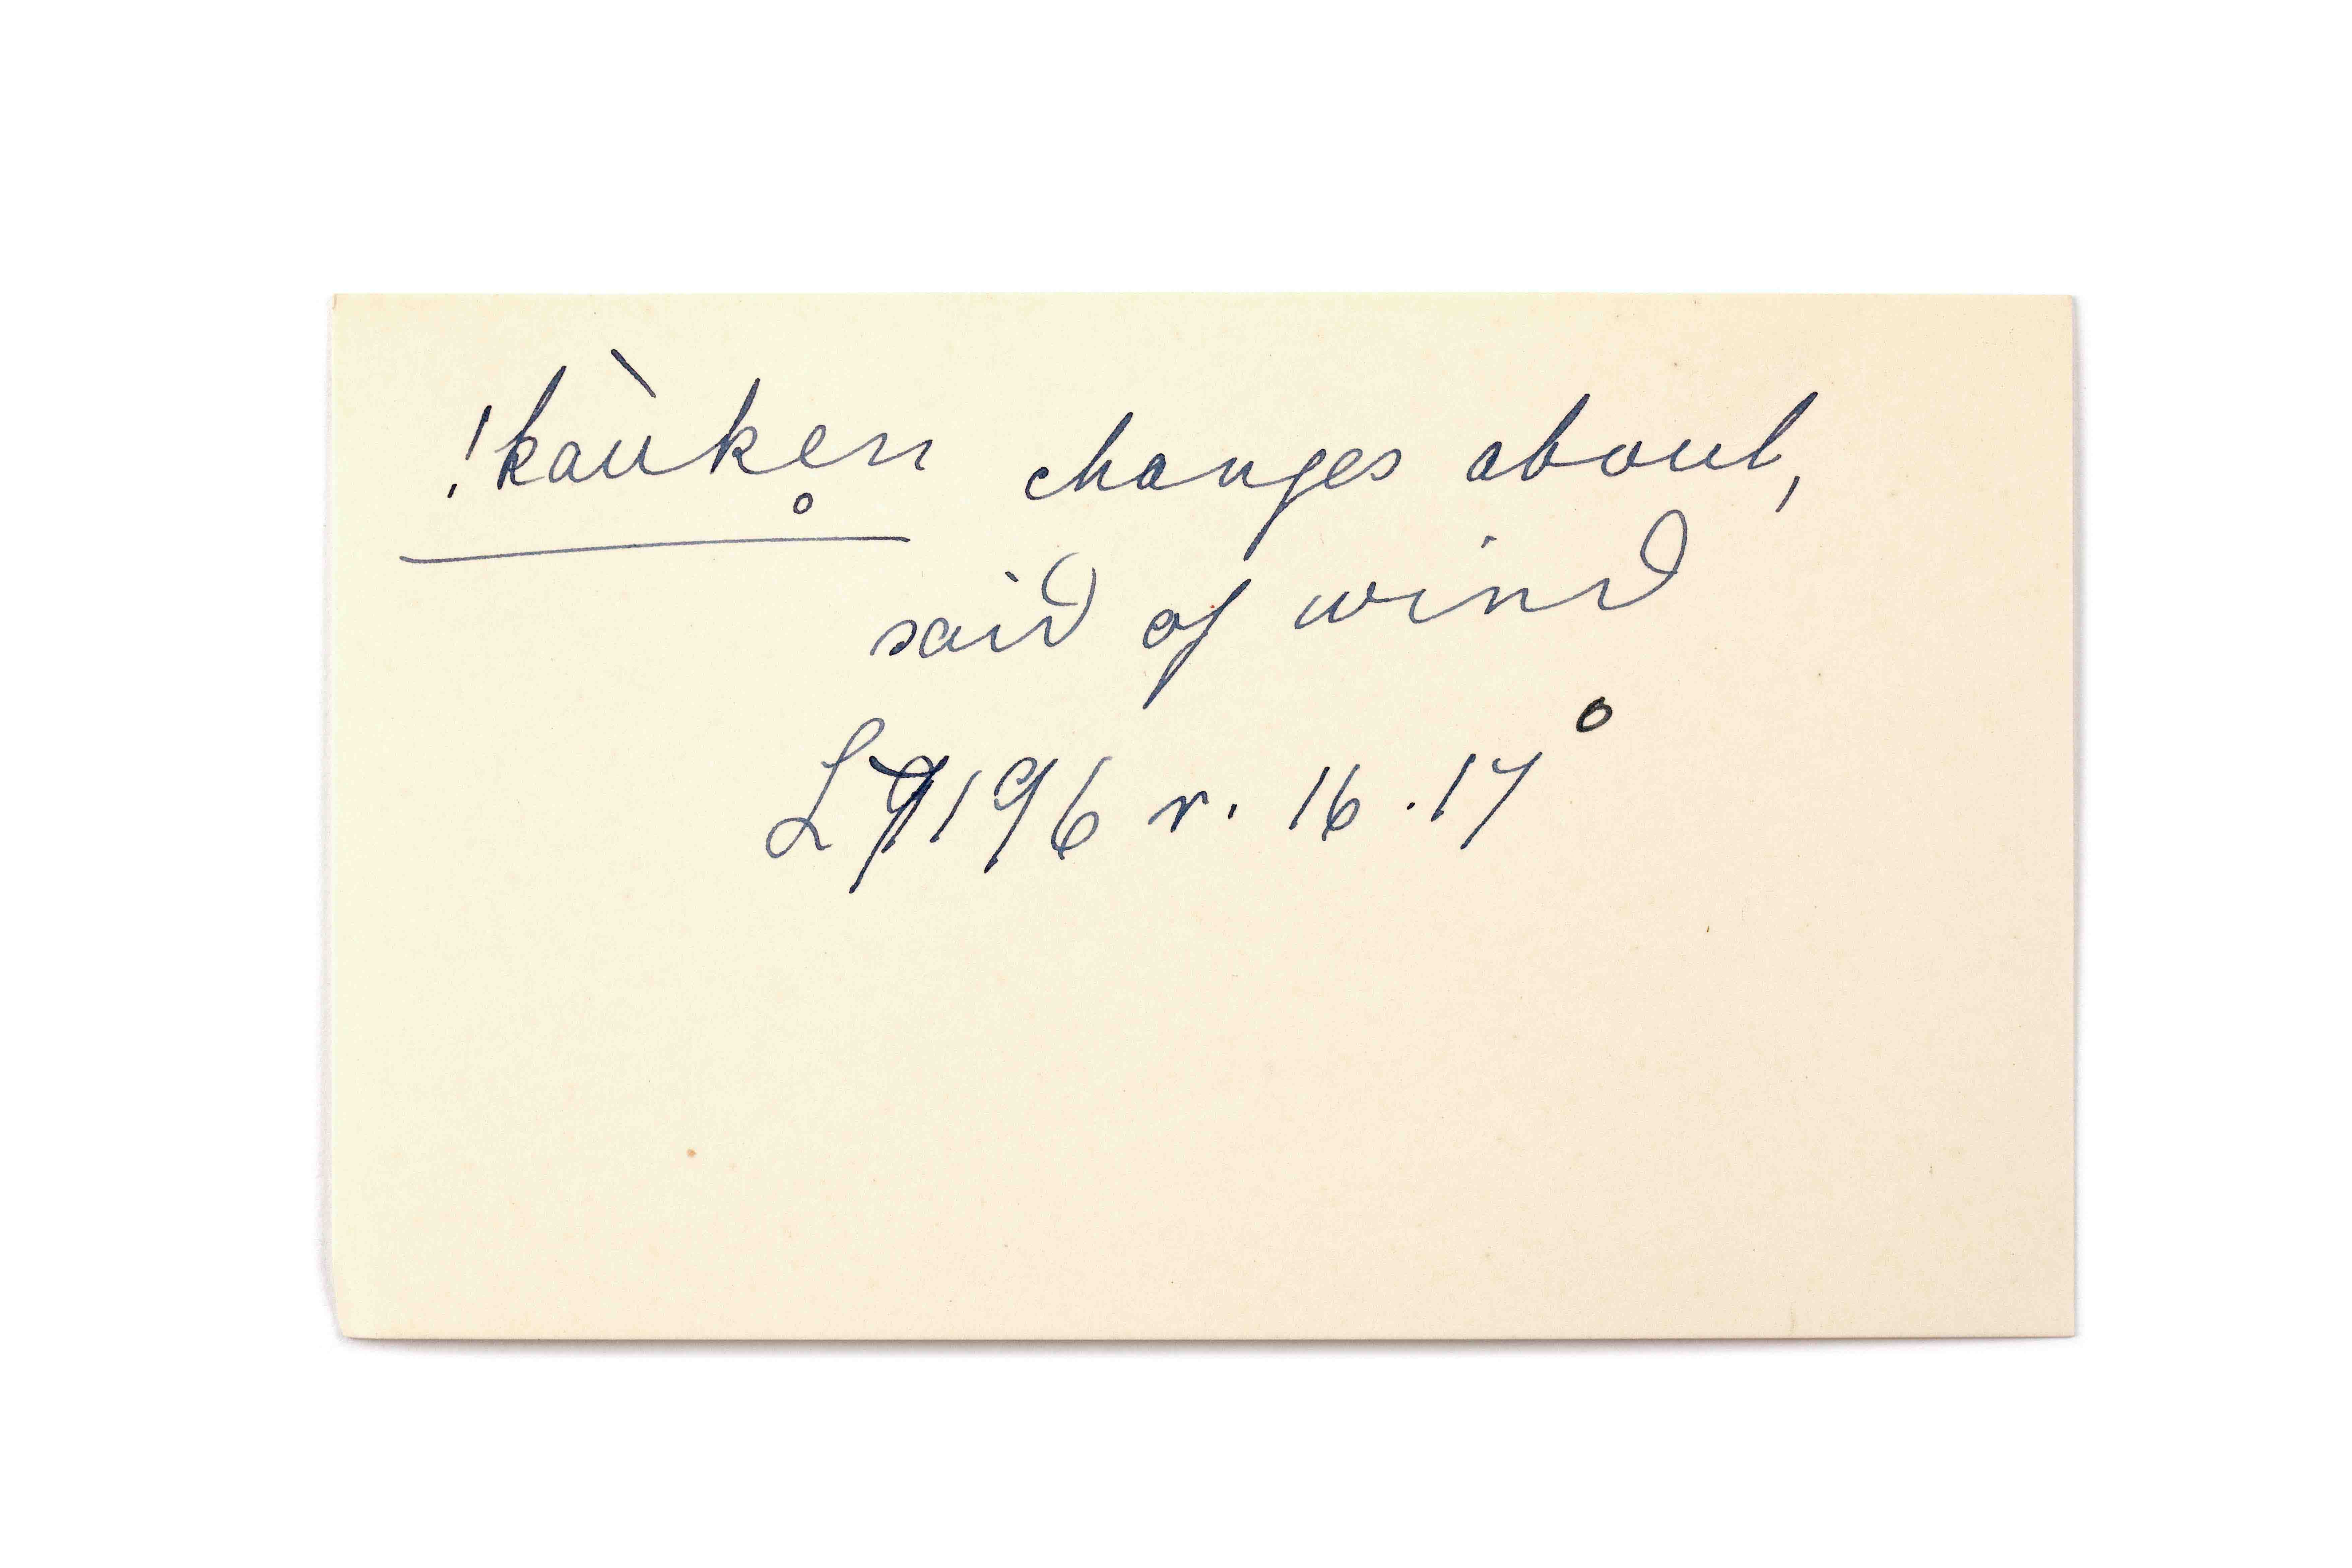 !kaùke̥n changes about,
said of wind
L 9196 r. 16.17°